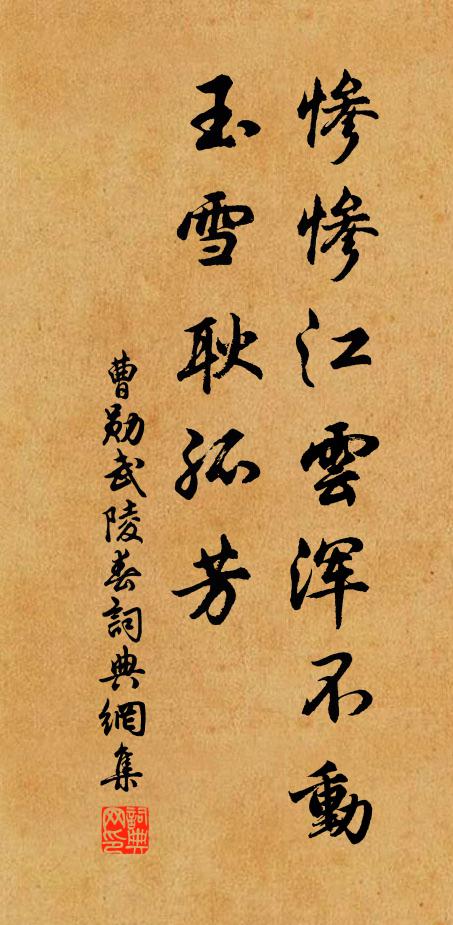 惨惨江雲浑不動
玉雪耿孤芳
曹勋武陵春詞典網集
詞典网印